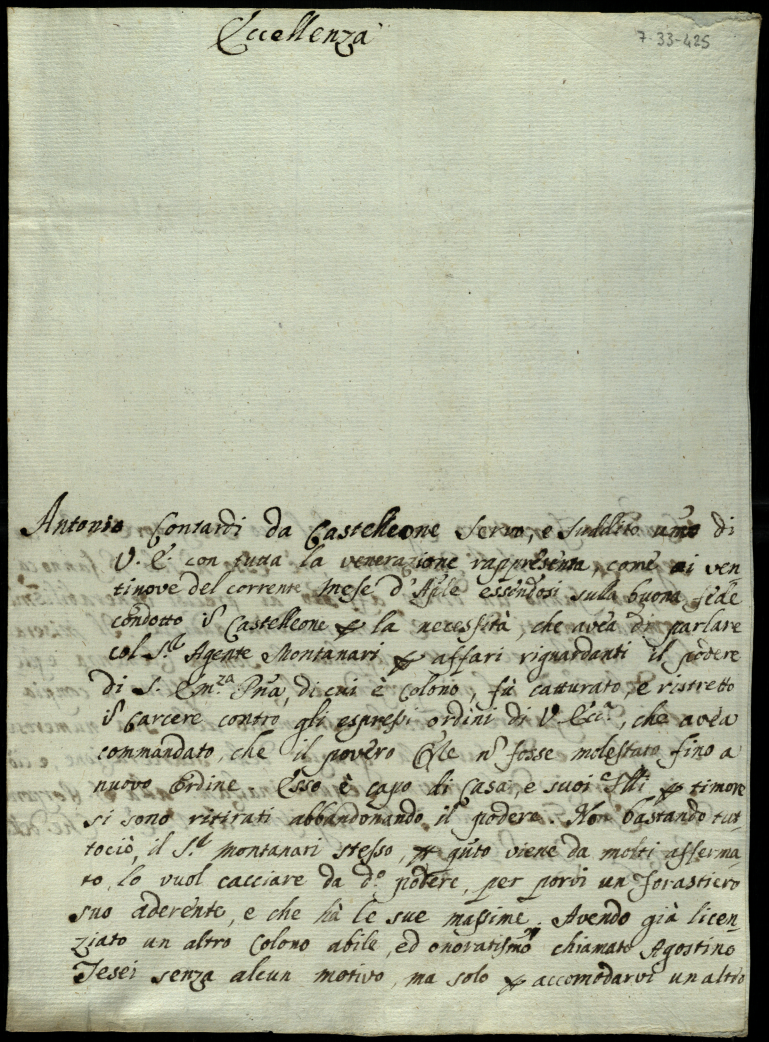 Eccellenza
7-33-425
Antonio Contardi da Castelleone servo, e suddito umo di
V. E. con tutta la venerazione rappresenta, come ai ven
tinove del corrente Mese d'Aple essendosi sulla buona fede
condotto i Castelleone p la necessità, che avea di parlare
col S.r Agente Montanari p affari riguardanti il podere
di S. Em.za Pña, di cui è Colono, fù catturato, e ristretto
i Carcere contro gli espressi ordini di V. Ecc.a, che avea
commandato, che il povero Ore n fosse molestato fino a
nuovo Ordine. Esso è capo di Casa, e suoi Flli p timore
si sono ritirati abbandonando il podere. Non bastando tut-
tociò, il S.r Montanari stesso, p quto viene da molti afferma-
to, lo vuol cacciare da d.o podere, per porvi un Forastiero
suo aderente, e che hà le sue massime. Avendo già licen-
ziato un altro Colono abile, ed onoratissmo chiamato Agostino
Tesei senza alcun motivo, ma solo p accomodarvi un altro